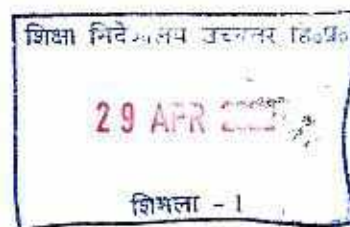 शिक्षा निदेशालय उच्चतर हि०प्र०
29 APR
शिमला - 1